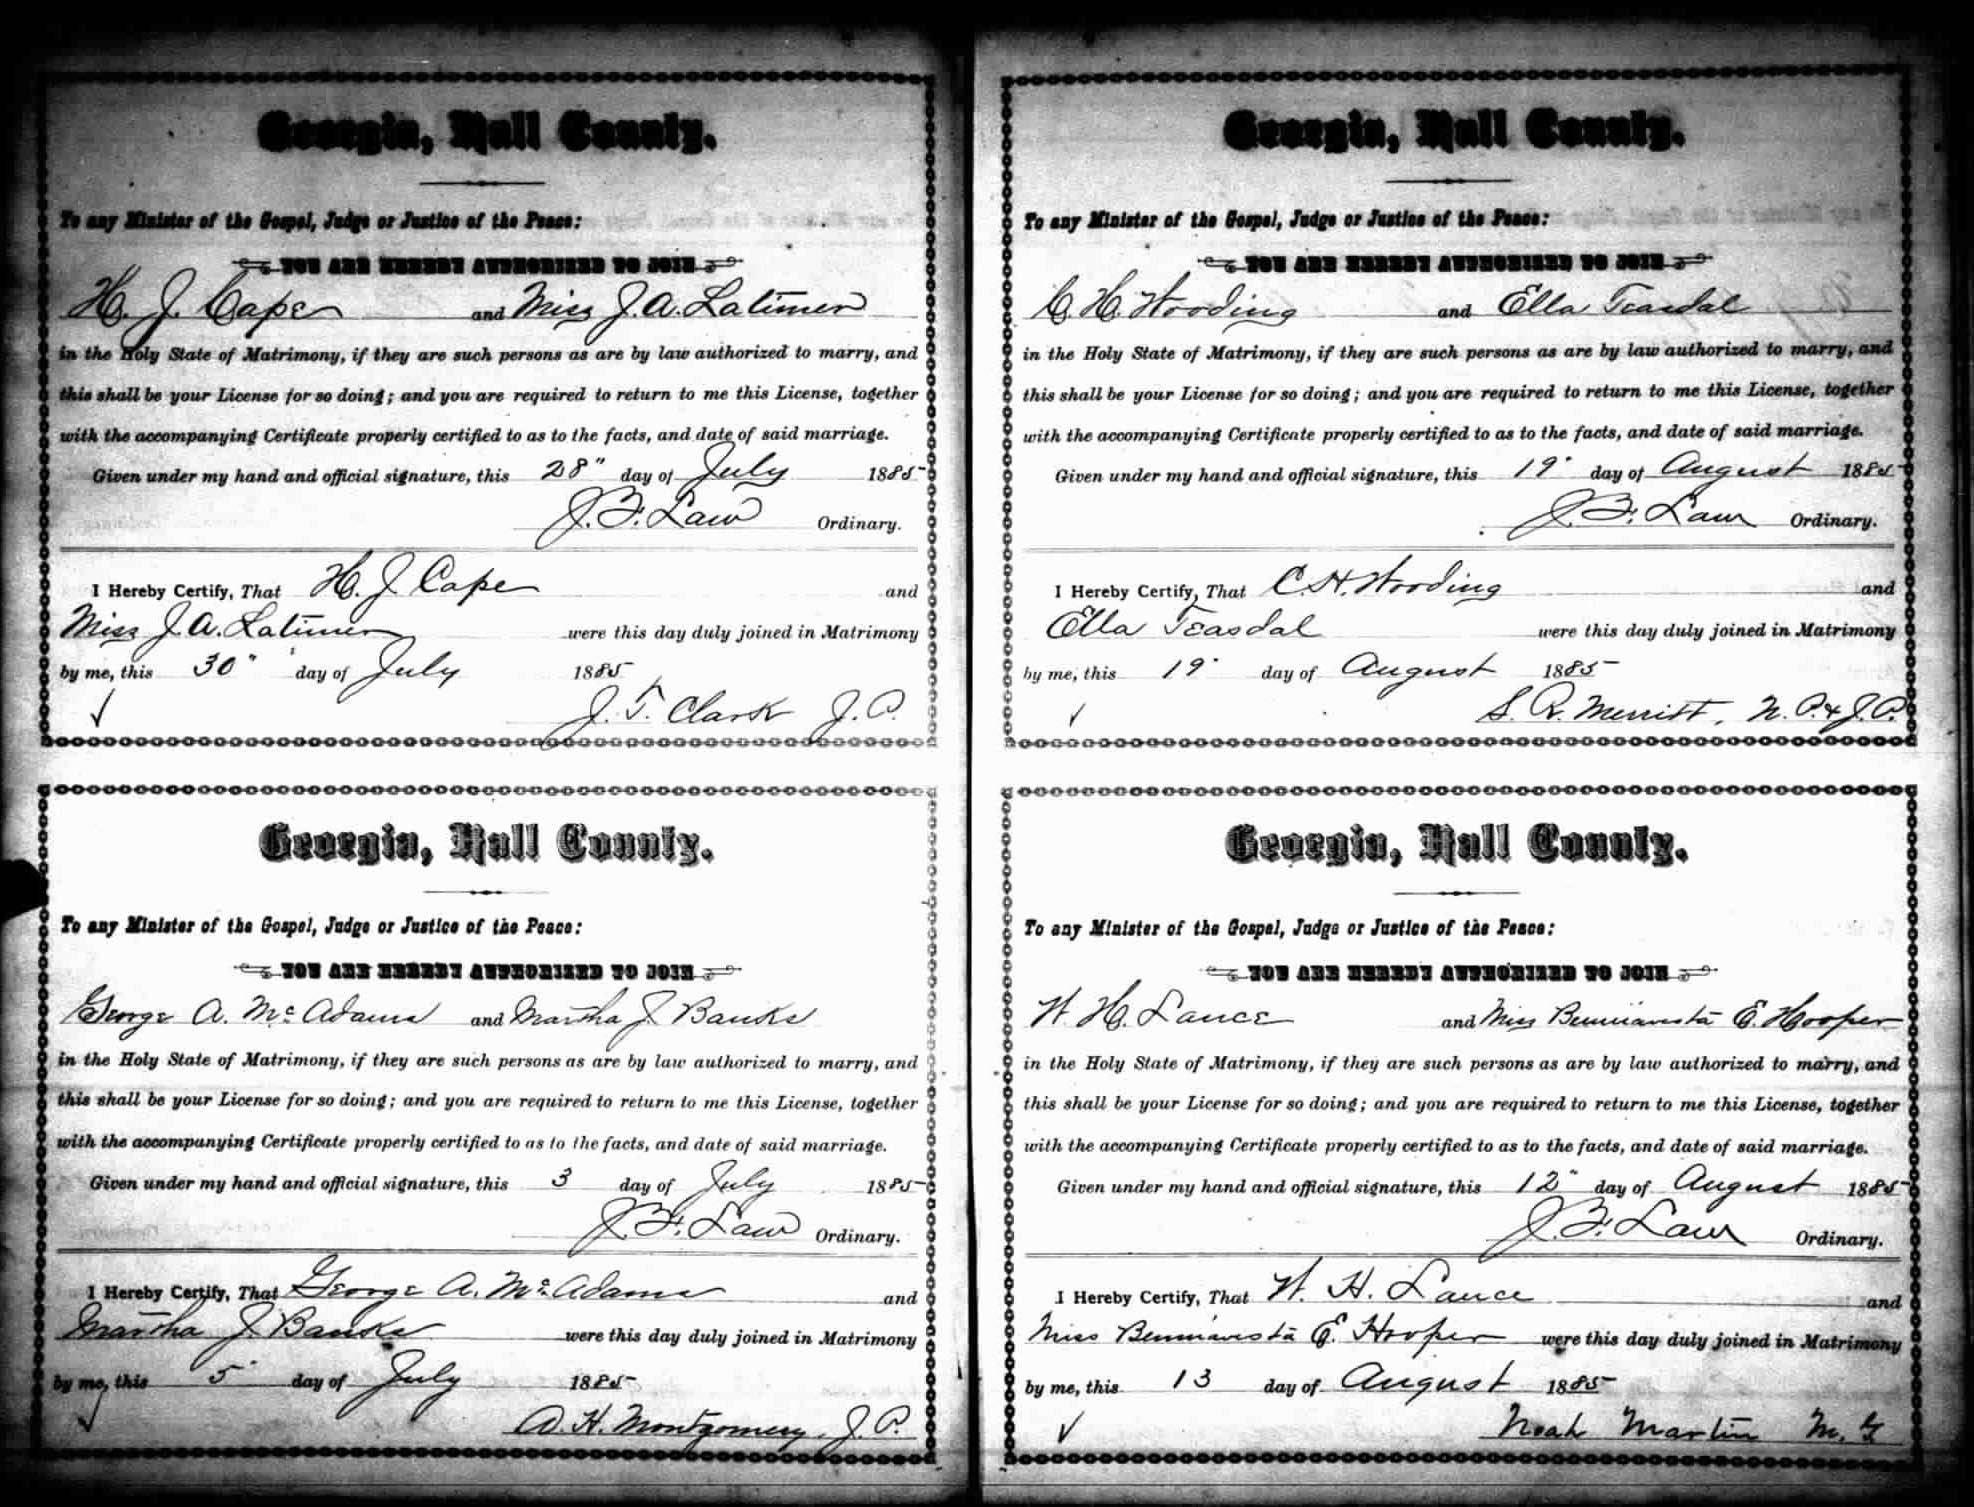 Georgia, Hall County.
To any Minister of the Gospel, Judge or Justice of the Peace:
YOU ARE HEREBY AUTHORIZED TO JOIN
H. J. Cape and Miss J. A. Latimer
in the Holy State of Matrimony, if they are such persons as are by law authorized to marry, and
this shall be your License for so doing; and you are required to return to me this License, together
with the accompanying Certificate properly certified to as to the facts, and date of said marriage.
Given under my hand and official signature, this 28" day of July 1885
J. B. Law Ordinary.
I Hereby Certify, That H. J Cape and
Miss J. A. Latimer were this day duly joined in Matrimony
by me, this 30" day of July 1885
J. T. Clark J. P.
Georgia, Hall County.
To any Minister of the Gospel, Judge or Justice of the Peace:
YOU ARE HEREBY AUTHORIZED TO JOIN
George A. McAdams and Martha J. Banks
in the Holy State of Matrimony, if they are such persons as are by law authorized to marry, and
this shall be your License for so doing; and you are required to return to me this License, together
with the accompanying Certificate properly certified to as to the facts, and date of said marriage.
Given under my hand and official signature, this 3 day of July 1885
J. B. Law Ordinary.
I Hereby Certify, That George A. McAdams and
Martha J. Banks were this day duly joined in Matrimony
by me, this 5" day of July 1885
A. H. Montgomery. J. P.
Georgia, Hall County.
To any Minister of the Gospel, Judge or Justice of the Peace:
YOU ARE HEREBY AUTHORIZED TO JOIN
C. H. Wooding and Ella Teasdal
in the Holy State of Matrimony, if they are such persons as are by law authorized to marry, and
this shall be your License for so doing; and you are required to return to me this License, together
with the accompanying Certificate properly certified to as to the facts, and date of said marriage.
Given under my hand and official signature, this 19" day of August 1885
J. B. Law Ordinary.
I Hereby Certify, That C. H. Wooding and
Ella Teasdal were this day duly joined in Matrimony
by me, this 19" day of August 1885
S. R. Merritt, N. P. & J. P.
Georgia, Hall County.
To any Minister of the Gospel, Judge or Justice of the Peace:
YOU ARE HEREBY AUTHORIZED TO JOIN
W. H. Lance and Miss E. Hooper
in the Holy State of Matrimony, if they are such persons as are by law authorized to marry, and
this shall be your License for so doing; and you are required to return to me this License, together
with the accompanying Certificate properly certified to as to the facts, and date of said marriage.
Given under my hand and official signature, this 12" day of August 1885
J. B. Law Ordinary.
I Hereby Certify, That W. H. Lance and
Miss E. Hooper were this day duly joined in Matrimony
by me, this 13 day of August 1885
Noah Martin M. G